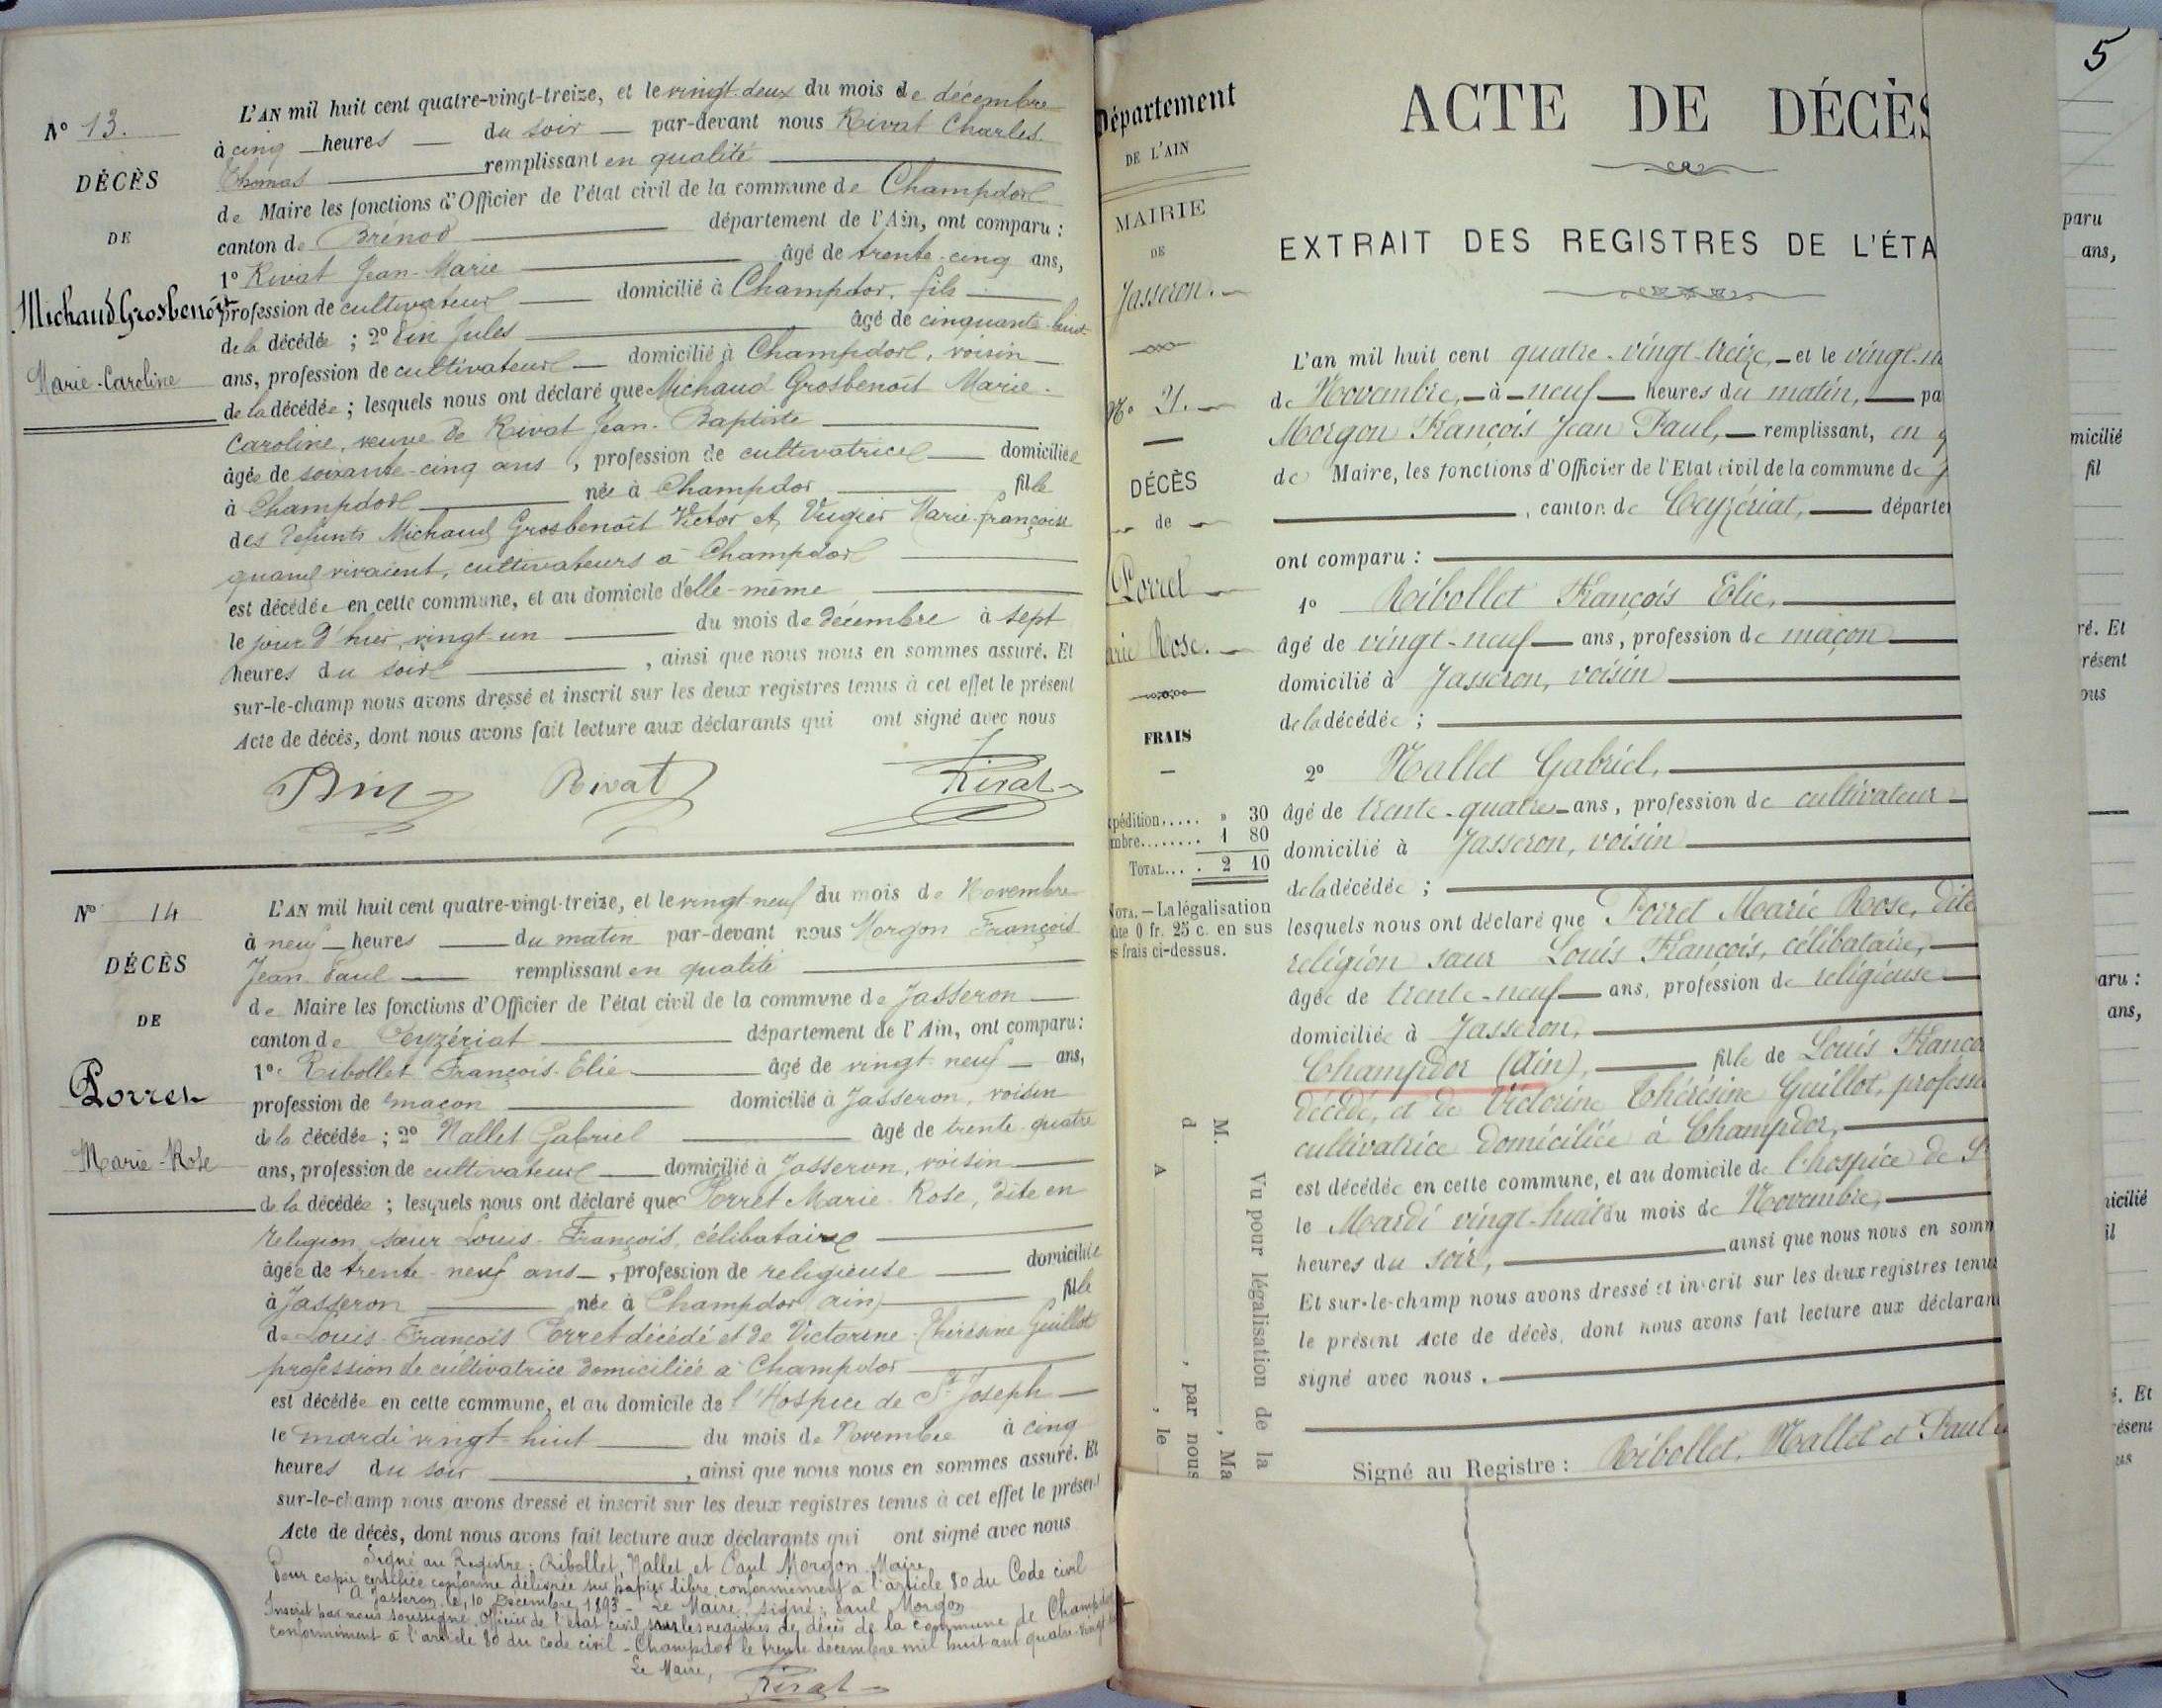 N° 13.
DÉCÈS
DE
Michaud Grosbenoît
Marie-Caroline
L'AN mil huit cent quatre-vingt-treize, et le vingt-deux du mois de décembre
à cinq heures du soir par-devant nous Rivat Charles
Thomas remplissant en qualité
de Maire les fonctions d'Officier de l'état civil de la commune de Champdor
canton de Brénod département de l'Ain, ont comparu :
1° Rivat Jean-Marie âgé de trente-cinq ans,
profession de cultivateur domicilié à Champdor, fils
de la décédée ; 2° Jules âgé de cinquante-huit
ans, profession de cultivateur domicilié à Champdor, voisin
de la décédée ; lesquels nous ont déclaré que Michaud Grosbenoît Marie-
Caroline, veuve de Rivat Jean-Baptiste
âgée de soixante-cinq ans, profession de cultivatrice domiciliée
à Champdor née à Champdor fille
des défunts Michaud Grosbenoît Victor et Marie-françoise
quand vivaient, cultivateurs à Champdor
est décédée en cette commune, et au domicile d'elle-même
le jour d'hier, vingt-un du mois de décembre à sept
heures du soir, ainsi que nous nous en sommes assuré. Et
sur-le-champ nous avons dressé et inscrit sur les deux registres tenus à cet effet le présent
Acte de décès, dont nous avons fait lecture aux déclarants qui ont signé avec nous
Rivat Rivat
N° 14
DÉCÈS
DE
Porret
Marie-Rose
L'AN mil huit cent quatre-vingt-treize, et le vingt-neuf du mois de Novembre
à neuf heures du matin par-devant nous Morgon François
Jean Paul remplissant en qualité
de Maire les fonctions d'Officier de l'état civil de la commune de Jasseron
canton de Ceyzériat département de l'Ain, ont comparu :
1° Ribollet François-Elie âgé de vingt-neuf ans,
profession de maçon domicilié à Jasseron, voisin
de la décédée ; 2° Nallet Gabriel âgé de trente-quatre
ans, profession de cultivateur domicilié à Jasseron, voisin
de la décédée ; lesquels nous ont déclaré que Porret Marie-Rose, dite en
religion sœur Louis-François, célibataire
âgée de trente-neuf ans, profession de religieuse domiciliée
à Jasseron née à Champdor (ain) fille
de Louis-François Porret décédé et de Victorine-Thérésine Guillot
profession de cultivatrice domiciliée à Champdor
est décédée en cette commune, et au domicile de l'Hospice de St Joseph
le mardi vingt-huit du mois de Novembre à cinq
heures du soir, ainsi que nous nous en sommes assuré. Et
sur-le-champ nous avons dressé et inscrit sur les deux registres tenus à cet effet le présent
Acte de décès, dont nous avons fait lecture aux déclarants qui ont signé avec nous
Signé au Registre : Ribollet, Nallet et Paul Morgon Maire
Pour copie certifiée conforme délivrée sur papier libre conformément à l'article 80 du Code civil
A Jasseron le, 10 Décembre 1893 - Le Maire, signé : Paul Morgon
Inscrit par nous soussigné, Officier de l'état civil sur les registres de décès de la commune de Champdor
conformément à l'article 80 du code civil - Champdor le trente décembre mil huit cent quatre-vingt
Le Maire,
Rivat
Département
DE L'AIN
MAIRIE
DE
Jasseron.
N° 21.
DÉCÈS
de
Porret
arie Rose.
FRAIS
xpédition..... » 30
mbre........ 1 80
TOTAL.... 2 10
NOTA. — La légalisation
ûte 0 fr. 25 c. en sus
s frais ci-dessus.
Vu pour légalisation de la
M. , Ma
d , par nous
A , le
ACTE DE DÉCÈS
EXTRAIT DES REGISTRES DE L'ÉTA
L'an mil huit cent quatre-vingt-treize, et le vingt-n
de Novembre, à neuf heures du matin, pa
Morgon François Jean Paul, remplissant, en q
de Maire, les fonctions d'Officier de l'Etat civil de la commune de J
, canton de Ceyzériat, départe
ont comparu :
1° Ribollet François Elie,
âgé de vingt-neuf ans, profession de maçon
domicilié à Jasseron, voisin
de la décédée ;
2° Nallet Gabriel,
âgé de trente-quatre ans, profession de cultivateur
domicilié à Jasseron, voisin
de la décédée ;
lesquels nous ont déclaré que Porret Marie Rose, dite
religion sœur Louis François, célibataire,
âgée de trente-neuf ans, profession de religieuse
domiciliée à Jasseron,
Champdor (Ain), fille de Louis França
décédé, et de Victorine Thérésine Guillot, professi
cultivatrice domiciliée à Champdor,
est décédée en cette commune, et au domicile de l'hospice de S
le Mardi vingt-huit du mois de Novembre,
heures du soir, ainsi que nous nous en somm
Et sur-le-champ nous avons dressé et inscrit sur les deux registres tenus
le présent Acte de décès, dont nous avons fait lecture aux déclaran
signé avec nous.
Signé au Registre : Ribollet, Nallet et Paul
5
paru
ans,
micilié
fil
ré. Et
résent
ous
aru :
ans,
icilié
il
. Et
ésent
us